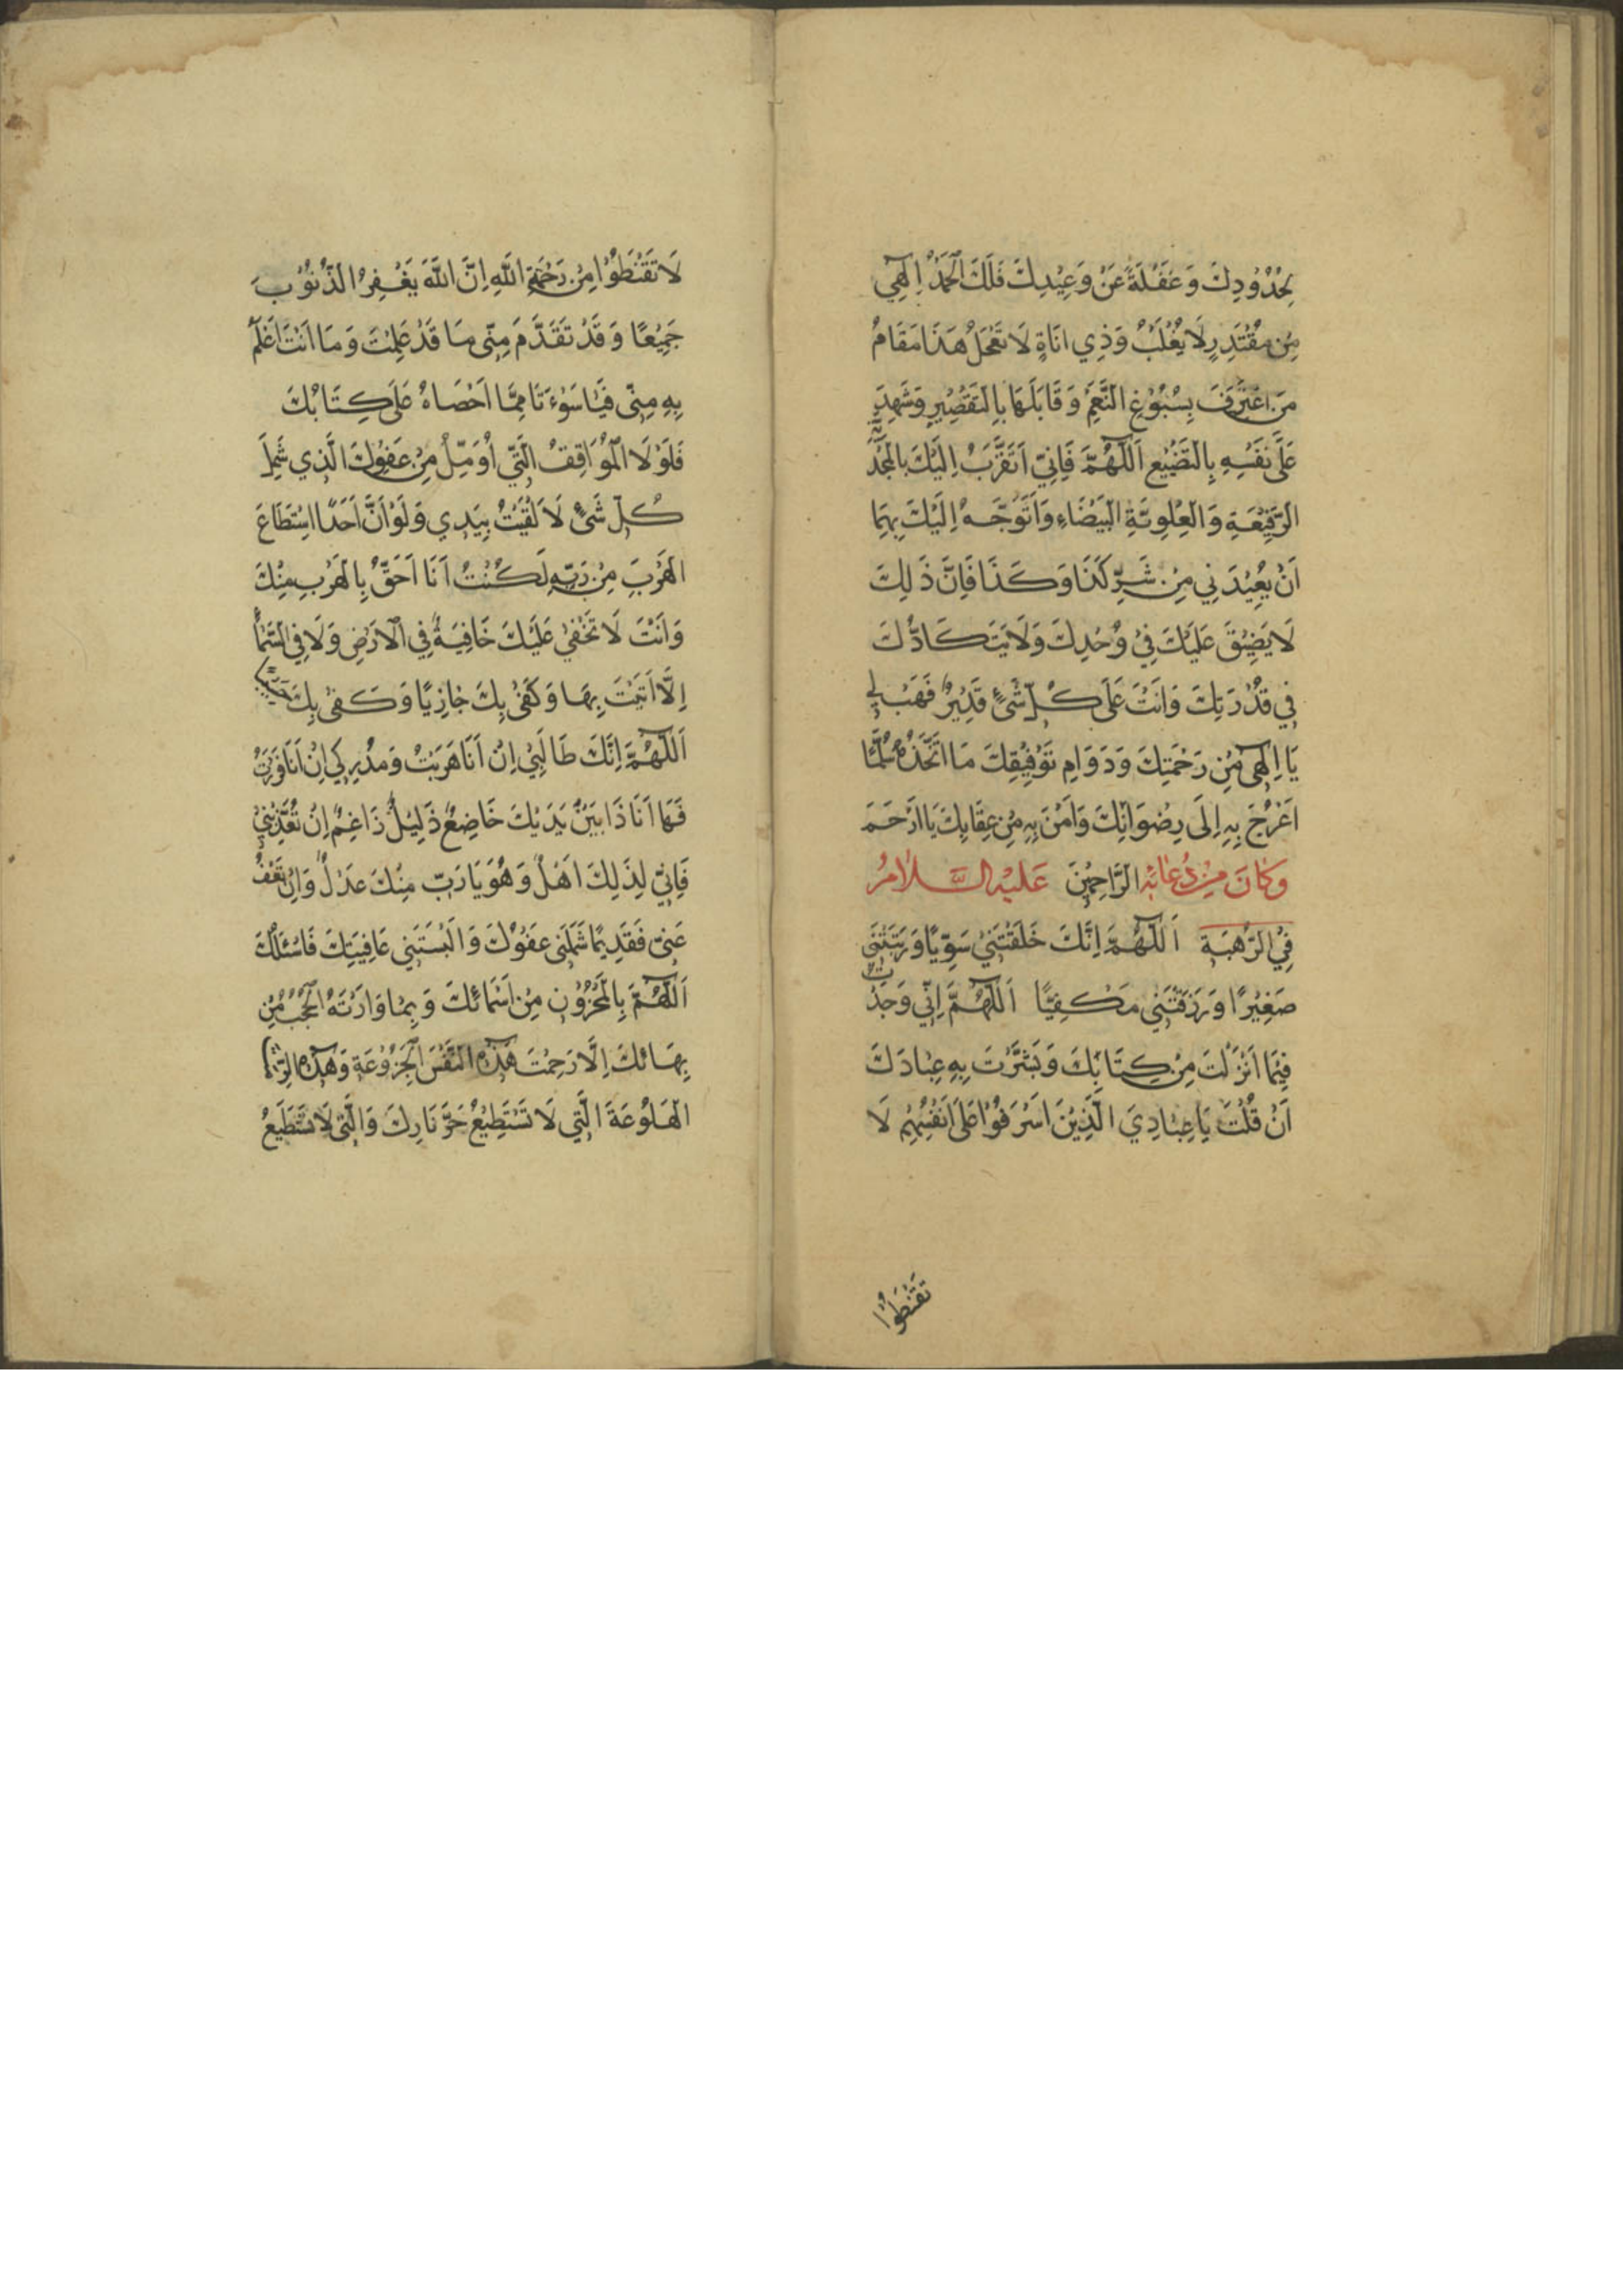 بِحُدُوْدِكَ وَغَفْلَةً عَنْ وَعِيْدِكَ فَلَكَ الْحَمْدُ اِلٰهِي
مِنْ مُقْتَدِرٍ لَا يُغْلَبُ وَذِي اَنَاةٍ لَا تَعْجَلُ هَذَا مَقَامُ
مَنِ اعْتَرَفَ بِسُبُوْغِ النِّعَمِ وَقَابَلَهَا بِالتَّقْصِيْرِ وَشَهِدَ
عَلَى نَفْسِهِ بِالتَّضْيِيْعِ اَللّٰهُمَّ فَاِنِّي اَتَقَرَّبُ اِلَيْكَ بِالْمُحَمَّدِيَّةِ
الرَّفِيْعَةِ وَالْعَلَوِيَّةِ الْبَيْضَاءِ وَاَتَوَجَّهُ اِلَيْكَ بِهِمَا
اَنْ يُعِيْذَنِي مِنْ شَرِّ كَذَا وَكَذَا فَاِنَّ ذَلِكَ
لَا يَضِيْقُ عَلَيْكَ فِي وُجْدِكَ وَلَا يَتَكَادُّكَ
فِي قُدْرَتِكَ وَاَنْتَ عَلَى كُلِّ شَيْءٍ قَدِيْرٌ فَهَبْ لِي
يَا اِلٰهِي مِنْ رَحْمَتِكَ وَدَوَامِ تَوْفِيْقِكَ مَا اَتَّخِذُهُ سُلَّمًا
اَعْرُجُ بِهِ اِلَى رِضْوَانِكَ وَاٰمَنُ بِهِ مِنْ عِقَابِكَ يَا اَرْحَمَ
وَكَانَ مِنْ دُعَائِهِ الرَّاحِمِيْنَ عَلَيْهِ السَّلَامُ
فِي الرَّهْبَةِ اَللّٰهُمَّ اِنَّكَ خَلَقْتَنِي سَوِيًّا وَرَبَّيْتَنِي
صَغِيْرًا وَرَزَقْتَنِي مَكْفِيًّا اَللّٰهُمَّ اِنِّي وَجَدْتُ
فِيْمَا اَنْزَلْتَ مِنْ كِتَابِكَ وَبَشَّرْتَ بِهِ عِبَادَكَ
اَنْ قُلْتَ يَا عِبَادِيَ الَّذِيْنَ اَسْرَفُوْا عَلَى اَنْفُسِهِمْ لَا
تَقْنَطُوْا
لَا تَقْنَطُوْا مِنْ رَحْمَةِ اللّٰهِ اِنَّ اللّٰهَ يَغْفِرُ الذُّنُوْبَ
جَمِيْعًا وَقَدْ تَقَدَّمَ مِنِّي مَا قَدْ عَلِمْتَ وَمَا اَنْتَ اَعْلَمُ
بِهِ مِنِّي فَيَا سَوْءَتَا مِمَّا اَحْصَاهُ عَلَيَّ كِتَابُكَ
فَلَوْلَا الْمَوَاقِفُ الَّتِي اُوَمِّلُ مِنْ عَفْوِكَ الَّذِي شَمِلَ
كُلَّ شَيْءٍ لَاَلْقَيْتُ بِيَدِي وَلَوْ اَنَّ اَحَدًا اسْتَطَاعَ
الْهَرَبَ مِنْ رَبِّهِ لَكُنْتُ اَنَا اَحَقَّ بِالْهَرَبِ مِنْكَ
وَاَنْتَ لَا تَخْفٰى عَلَيْكَ خَافِيَةٌ فِي الْاَرْضِ وَلَا فِي السَّمَاءِ
اِلَّا اَتَيْتَ بِهَا وَكَفٰى بِكَ جَازِيًا وَكَفٰى بِكَ حَسِيْبًا
اَللّٰهُمَّ اِنَّكَ طَالِبِي اِنْ اَنَا هَرَبْتُ وَمُدْرِكِي اِنْ اَنَا فَرَرْتُ
فَهَا اَنَا ذَا بَيْنَ يَدَيْكَ خَاضِعٌ ذَلِيْلٌ رَاغِمٌ اِنْ تُعَذِّبْنِي
فَاِنِّي لِذَلِكَ اَهْلٌ وَهُوَ يَا رَبِّ مِنْكَ عَدْلٌ وَاِنْ تَعْفُ
عَنِّي فَقَدِيْمًا شَمَلَنِي عَفْوُكَ وَاَلْبَسْتَنِي عَافِيَتَكَ فَاَسْئَلُكَ
اَللّٰهُمَّ بِالْمَخْزُوْنِ مِنْ اَسْمَائِكَ وَبِمَا وَارَتْهُ الْحُجُبُ مِنْ
بَهَائِكَ اِلَّا رَحِمْتَ هٰذِهِ النَّفْسَ الْجَزُوْعَةَ وَهٰذِهِ الرِّمَّةَ
الْهَلُوْعَةَ الَّتِي لَا تَسْتَطِيْعُ حَرَّ نَارِكَ وَالَّتِي لَا تَسْتَطِيْعُ